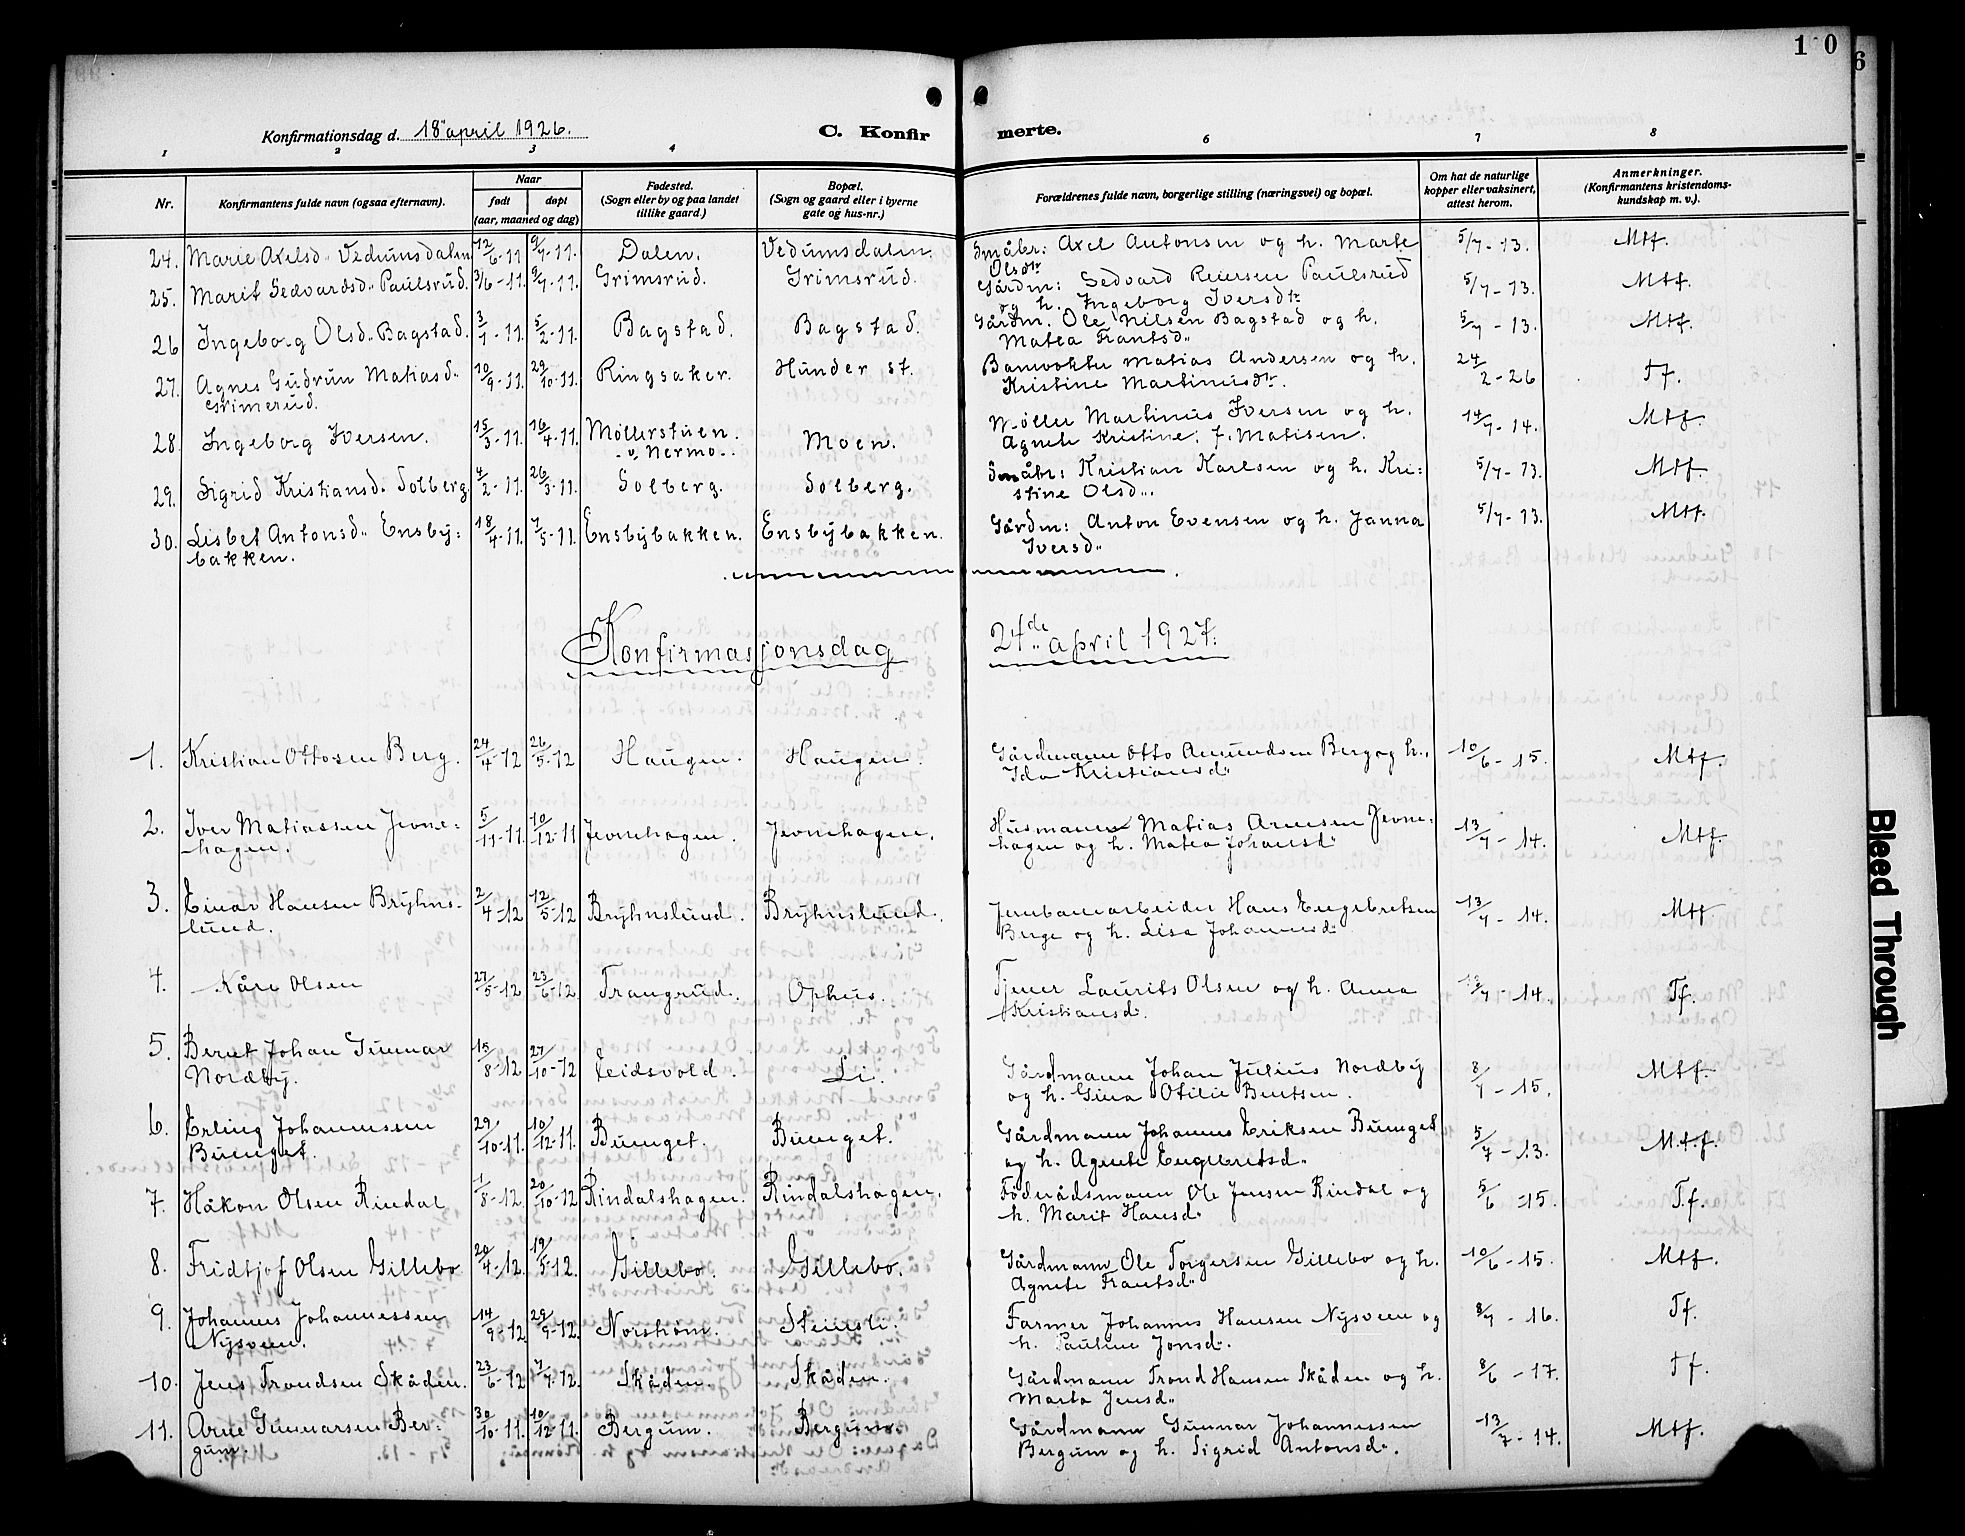 1 0
6
Konfirmationsdag d. 18" april 1926.
C. Konfir merte.
1 2 3 4 6 7 8
Nr.
Konfirmantens fulde navn (ogsaa efternavn).
Naar
født døpt
(aar, maaned og dag)
Fødested.
(Sogn eller by og paa landet
tillike gaard.)
Bopæl.
(Sogn og gaard eller i byerne
gate og hus-nr.)
Forældrenes fulde navn, borgerlige stilling (næringsvei) og bopæl.
Om hat de naturlige
kopper eller vaksinert,
attest herom.
Anmerkninger.
(Konfirmantens kristendoms-
kundskap m. v.).
24. Marie Axelsd" Vedumsdalen 12/6-11 9/7-11. Dalen. Vedumsdalen. Småbr: Axel Antonsen og h. Marte 5/7-13. Mtf.
Olsdtr
25. Marit Sedvardsd" Paulsrud. 3/6-11. 9/7-11. Grimsrud. Grimsrud. Gårdm: Sedvard Reiersen Paulsrud 5/7-13. Mtf.
og h. Ingeborg Iversdtr
26 Ingeborg Olsd" Bagstad. 3/1-11. 5/2-11. Bagstad. Bagstad. Gårdm. Ole Nilsen Bagstad og h. 5/7-13. Mtf.
Matea Frantsd"
27. Agnes Gudrun Matiasd" 10/9-11. 29/10-11. Ringsaker. Hunder st. Banevokter Matias Andersen og h. 24/2-26 Tf.
Grimerud. Kristine Martinusdtr.
28. Ingeborg Iversen. 15/3-11. 16/4-11. Møllerstuen. Moen. Møller Martinus Iversen og h. 14/7-14. Mtf.
v. Nermo. Agnete Kristine f. Matisen.
29. Sigrid Kristiansd. Solberg. 4/2-11. 26/3-11. Solberg. Solberg. Småbr: Kristian Karlsen og h. Kri: 5/7-13. Mtf.
stine Olsd".
30. Lisbet Antonsd" Ensby: 18/4-11. 7/5-11. Ensbybakken. Ensbybakken. Gårdm: Anton Evensen og h. Janna 5/7-13. Mtf.
bakken. Iversd"
Konfirmasjonsdag 24de april 1927.
1. Kristian Ottosen Berg. 24/4-12 26/5-12 Haugen. Haugen. Gårdmann Otto Amundsen Berg og h. 10/6-15. Mtf.
Ida Kristiansd"
2. Iver Matiassen Jevne: 5/11-11. 10/12-11 Jevnehagen. Jevnehagen. Husmann Matias Arnesen Jevne: 13/7-14. Mtf.
hagen. hagen og h. Matea Johansd"
3. Einar Hansen Bryhns- 2/4-12 12/5-12 Bryhnslund. Bryhnslund. Jernbanearbeider Hans Engebretsen 13/7-14. Mtf
lund. Berge og h. Lisa Johannesd"
4. Kåre Olsen 27/5-12 23/6-12 Trangrud. Ophus. Tjener Laurits Olsen og h. Anna 13/7-14. Tf.
Kristiansd.
5. Bernt Johan Gunnar 15/8-12 27/10-12 Eeidsvold. Li. Gårdmann Johan Julius Nordby 8/7-15. Mtf.
Nordby. og h. Gina Otilie Berntsen.
6. Erling Johannessen 29/10-11. 10/12-11. Buenget. Buenget. Gårdmann Johannes Eriksen Buenget 5/7-13. M.t.f.
Buenget. og h. Agnete Engebretsd"
7. Håkon Olsen Rindal 1/8-12. 20/10-12 Rindalshagen. Rindalshagen. Føderådsmann Ole Jensen Rindal og 5/6-15. T.f.
h. Marit Hansd"
8. Fridtjof Olsen Gillebo 20/4-12. 19/5-12. Gillebo. Gillebo. Gårdmann Ole Torgersen Gillebo og h. 10/6-15. Mtf.
Agnete Frantsd"
9. Johannes Johannessen 14/9-12 29/9-12. Norstrøm. Steinsli. Farmer Johannes Hansen Nysveen og 8/7-16. Tf.
Nysveen. h. Pauline Jonsd".
10. Jens Trondsen Skåden. 23/6-12 7/7-12. Skåden. Skåden. Gårdmann Trond Hansen Skåden og h. 8/6-17. Tf.
Marta Jensd"
11. Arne Gunnarsen Ber- 30/10-11. 10/12-11. Bergum. Bergum. Gårdmann Gunnar Johannessen 13/7-14. Mtf.
gum. Bergum og h. Sigrid Antonsd".
Bleed Through